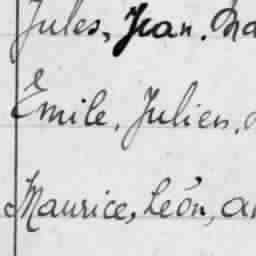 Jules, Jean.
Emile, Julien.
Maurice, Léon,